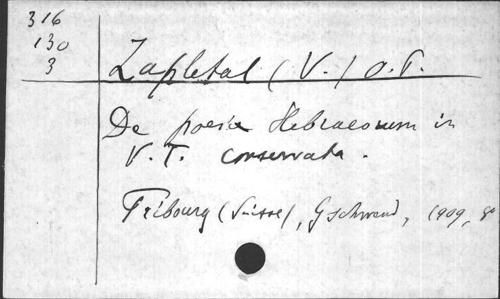 316
130
3
Zapletal (V.) O.P.
De poesia Hebraeorum in
V. T. conservata.
Fribourg (Suisse), Gschwend, 1909, 8°